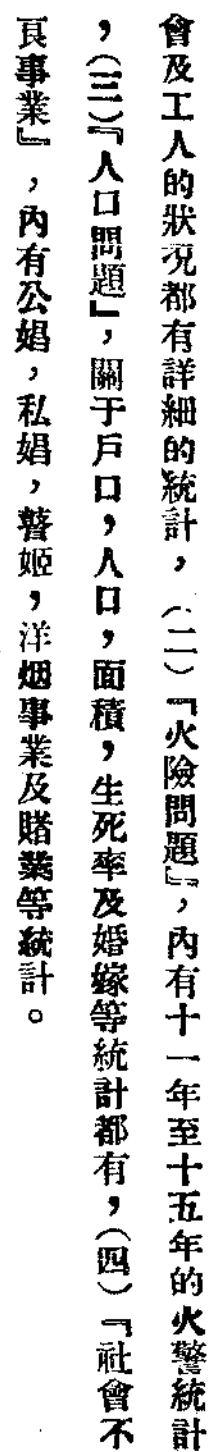 會及工人的狀況都有詳細的統計，（二）『火險問題』，內有十一年至十五年的火警統計
，（三）『人口問題』，關于戶口，人口，面積，生死率及婚嫁等統計都有，（四）『社會不
良事業』，內有公娼，私娼，瞽姬，洋烟事業及賭業等統計。